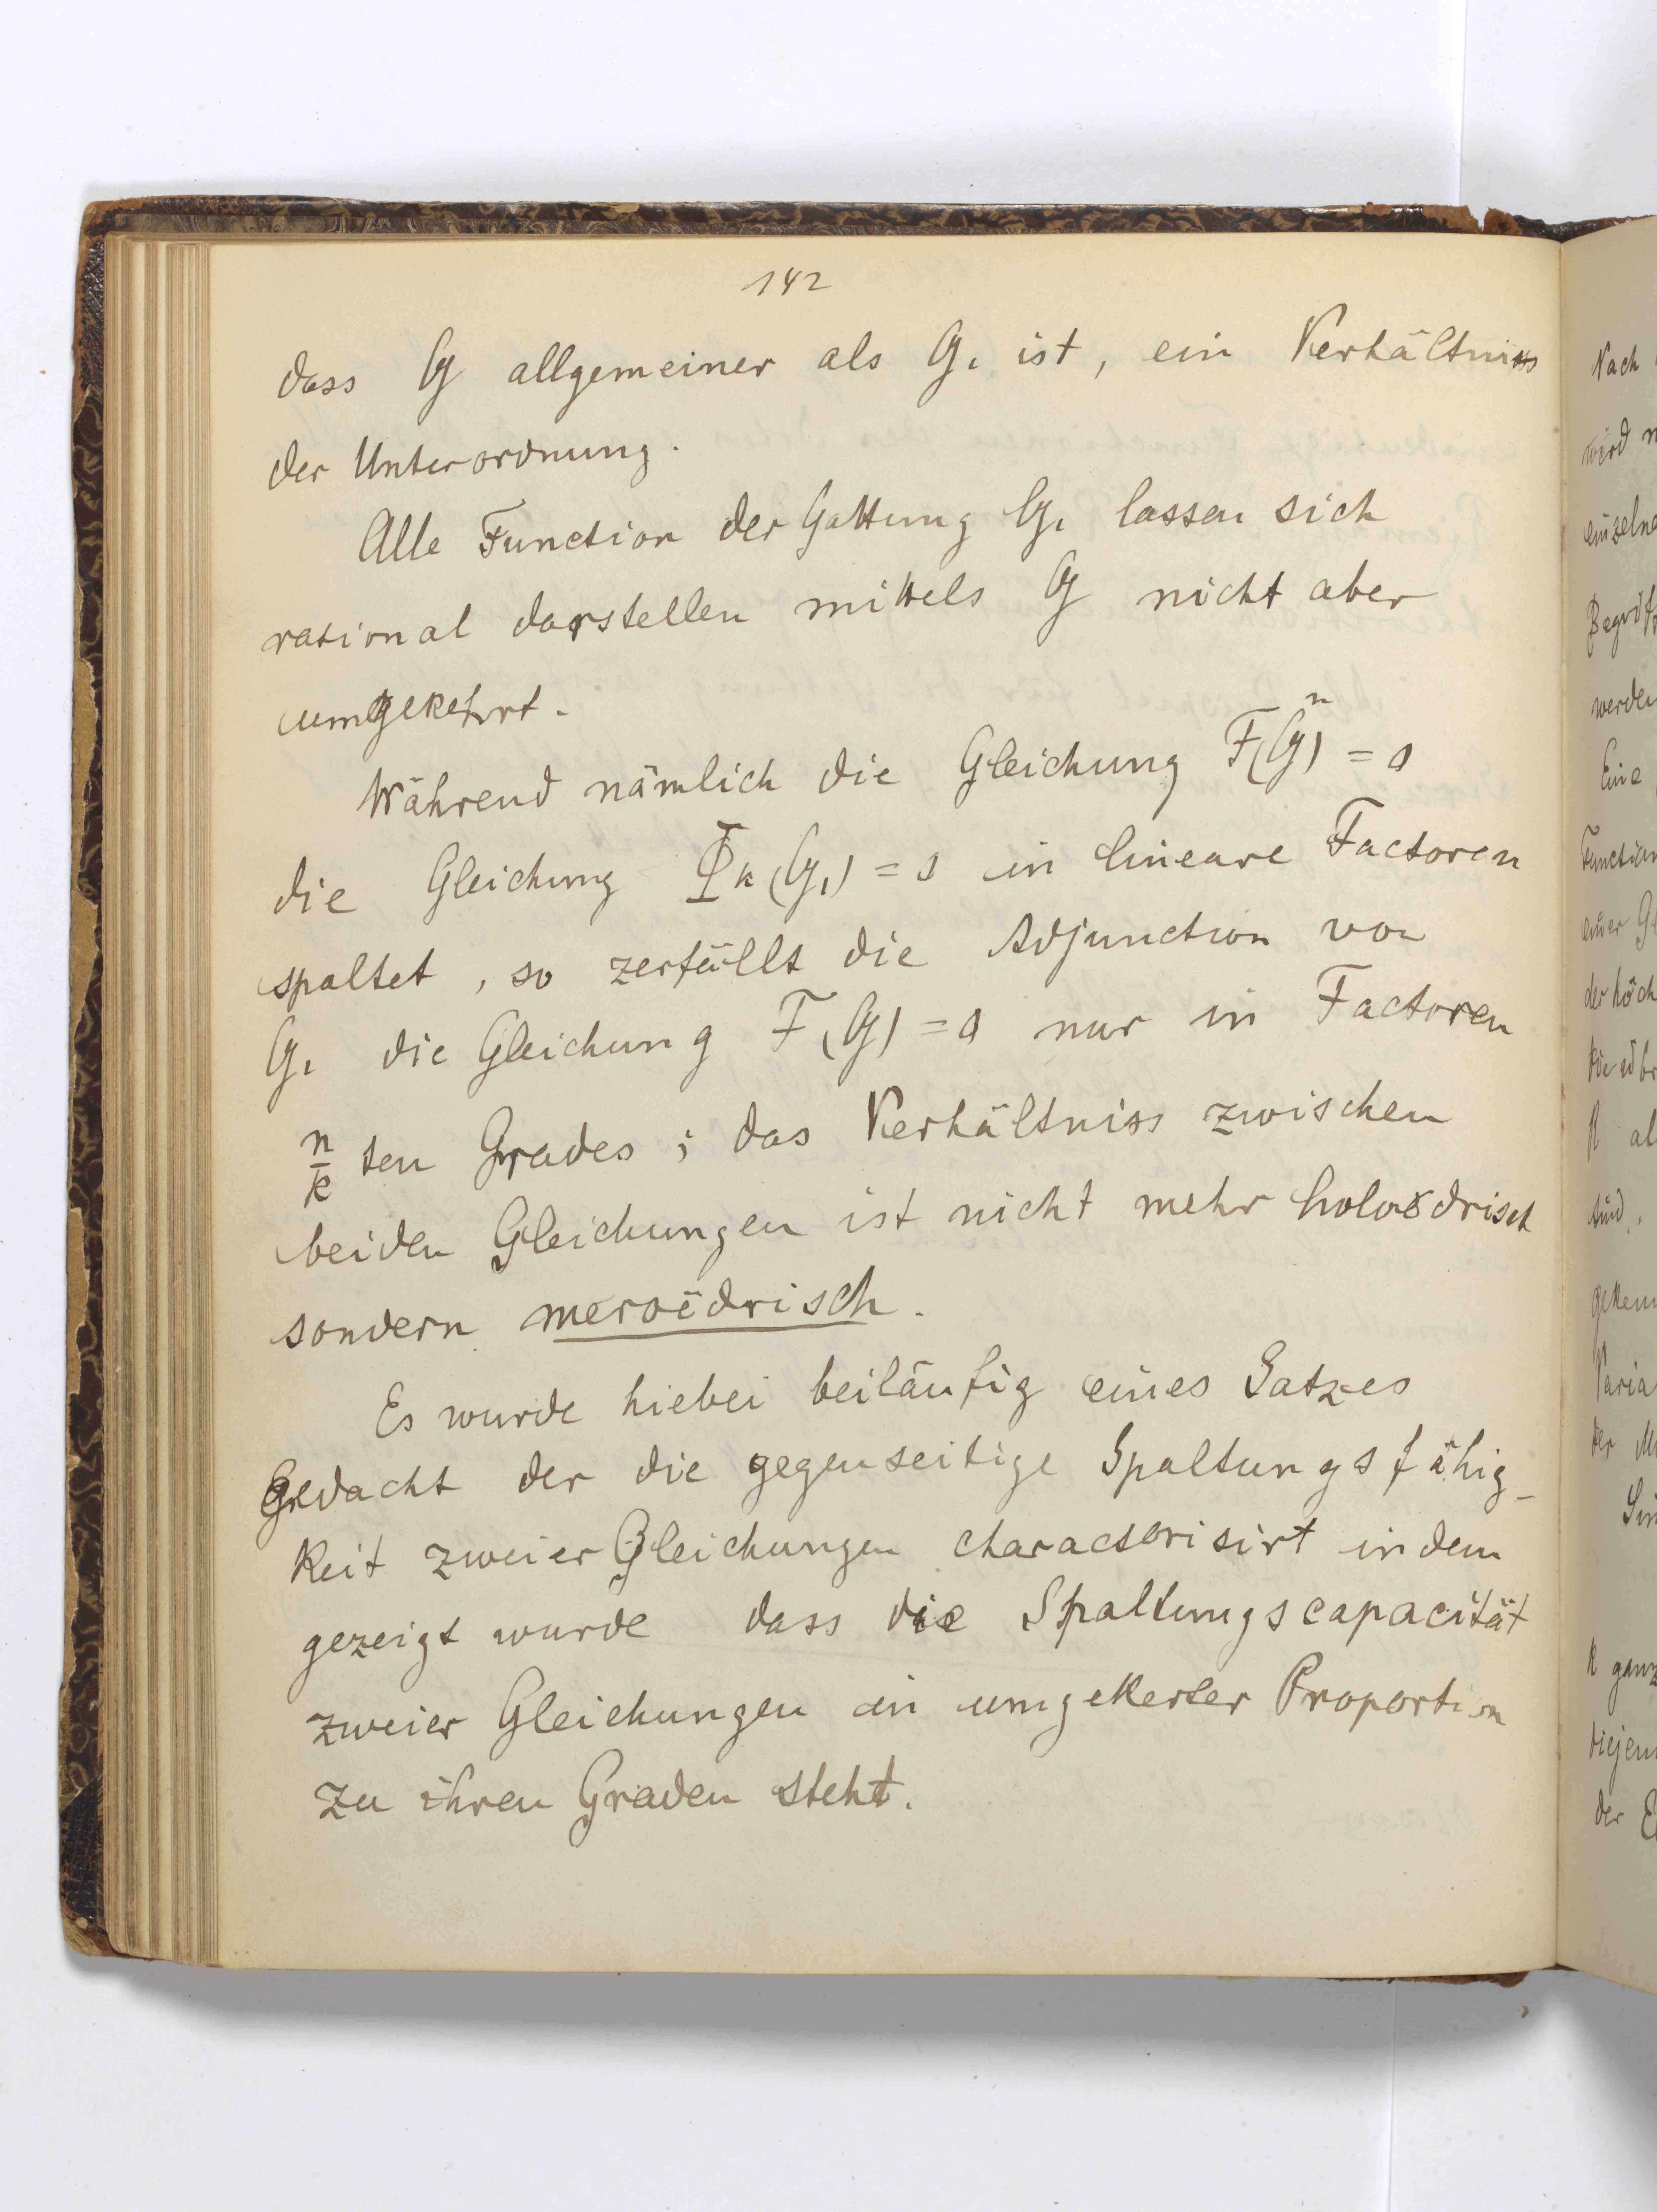 142
dass G allgemeiner als G₁ ist, ein Verhältniss
der Unterordnung.
Alle Function der Gattung G₁ lassen sich
rational darstellen mittels G nicht aber
umgekehrt.
Während nämlich die Gleichung F(G)ⁿ = 0
die Gleichung Φk(G₁) = 0 in lineare Factoren
spaltet, so zerfällt die Adjunction von
G₁ die Gleichung F(G) = 0 nur in Factoren
n/k ten Grades; das Verhältniss zwischen
beiden Gleichungen ist nicht mehr holoëdrisch
sondern meroëdrisch.
Es wurde hiebei beiläufig eines Satzes
Gedacht der die gegenseitige Spaltungsfähig-
keit zweier Gleichungen characterisirt indem
gezeigt wurde dass die Spaltungscapacität
zweier Gleichungen in umgekerter Proportion
zu ihren Graden steht.
Nach
wird
einzelne
werden
Eine
Function
einer
der höch
al
sind.
ganz
der